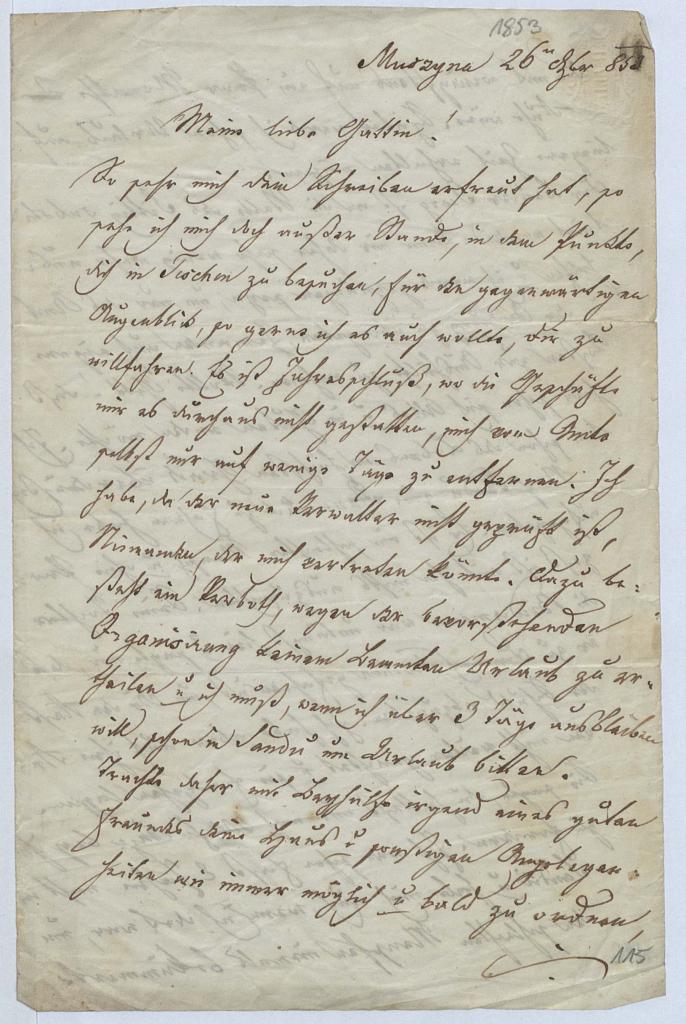 1853
Muszyna 26n Xbr 853
Meine liebe Gattin!
So sehr mich dein Schreiben erfreut hat, so
sehe ich mich doch außer Stande, in dem Punkte,
dich in Teschen zu besuchen, für den gegenwärtigen
Augenblick, so gerne ich es auch wollte, dir zu
willfahren. Es ist Jahresschluß, wo die Geschäfte
mir es durchaus nicht gestatten, mich vom Amte
selbst nur auf wenige Täge zu entfernen. Ich
habe, da der neue Verwalter nicht geprüft ist,
Niemanden, der mich vertreten könnte. Dazu be-
steht ein Verboth, wegen der bevorstehenden
Organisirung keinem Beamten Urlaub zu er-
theilen u ich muß, wenn ich über 3 Täge ausbleiben
will, schon in Sandec um Urlaub bitten.
Trachte daher mit Beyhülfe irgend eines guten
Freundes dein Haus u sonstigen Angelegen-
heiten wie immer möglich u bald zu ordnen,
115